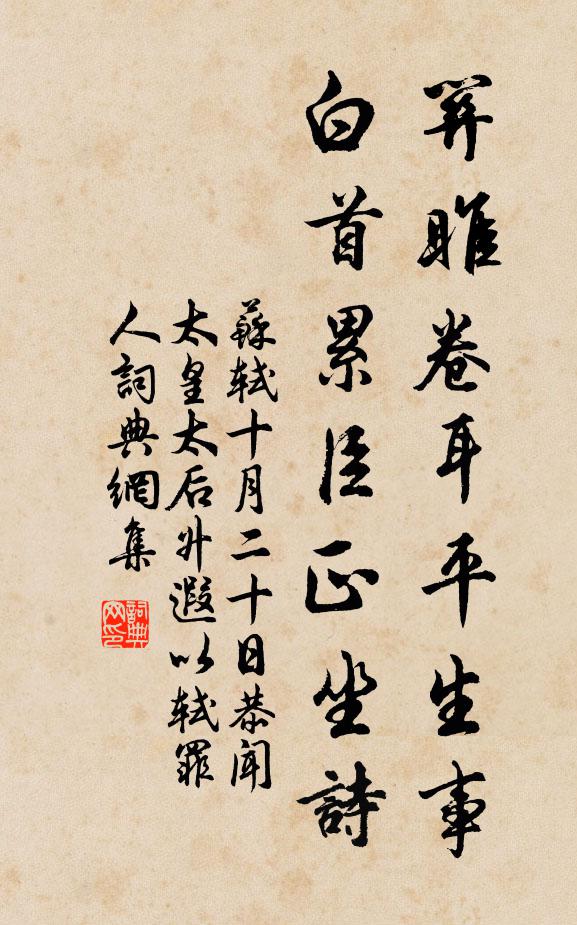 關雎卷耳平生事
白首累臣正坐詩
蘇軾十月二十日恭聞
太皇太后升遐以軾罪
人詞典網集
詞典网印